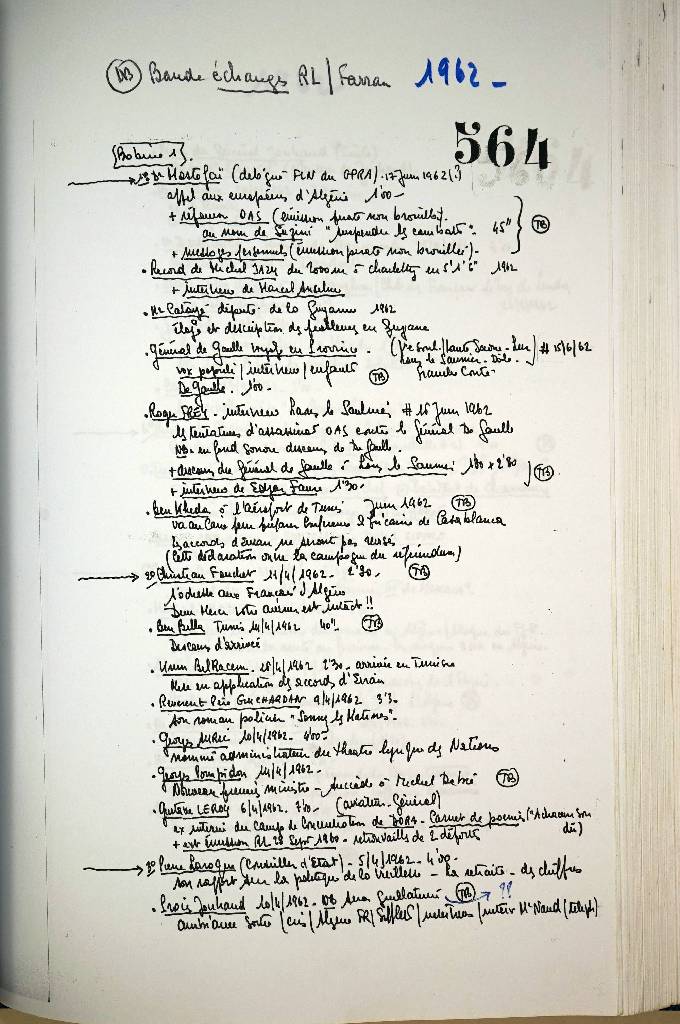 DB Bande échanges RL / Farran 1962 -
564
Bobine 1
Mr Mostefaï (délégué FLN du GPRA). 17 Juin 1962 (?)
appel aux européens d'Algérie 1'00 -
+ réponse OAS (émission pirate non brouillée).
au nom de Suzini "suspendre les combats". 45" TB
+ messages personnels (émission pirate non brouillée) -
. Record de Michel JAZY du 2000 m à charletty en 5'1"6" 1962
+ interview de Marcel Anselme
. Mr Catayé député de la Guyane 1962
éloge et description des problèmes en Guyane
. Général de Gaulle voyage en Province. (Vesoul / Haute Saône - Lure / # 15/6/62
Lons le Saunier - Dôle -
vox populi / interview / enfants TB Franche Comté
De Gaulle. 1'00 -
. Roger FREY - interview Lons le Saulnier # 16 Juin 1962
les tentatives d'assassinat OAS contre le Général De Gaulle
NB - en fond sonore discours de De Gaulle.
+ discours du Général de Gaulle à Lons le Saunier 1'80 + 2'80 TB
+ interview de Edgar Faure 1'30 -
. Ben Kheda à l'aéroport de Tunis Juin 1962 TB
va au Caire pour préparer Conférence Africaine de Casablanca
Les accords d'Evian ne seront pas révisés
(Cette déclaration ouvre la campagne du référendum)
Christian Fouchet 11/4/1962 - 2'30 - TB
s'adresse aux Français d'Algérie
votre avenir est intact !!
. Ben Bella Tunis 14/4/1962 40" TB
Discours d'arrivée
. Krim BelKacem - 28/4/1962 2'30 - arrivée en Tunisie
Mise en application des accords d'Evian
. Révérend Père GUICHARDAN 9/4/1962 3'3 -
son roman policier "Sonnez les Matines" -
. Georges AURIC 10/4/1962 - 4'00 -
nommé administrateur du théâtre lyrique des Nations
. Georges Pompidou 14/4/1962 -
Nouveau premier ministre - succède à Michel Debré TB
. Gustave LEROY 6/4/1962 - 7'10 - (aviateur - Général)
ex interné du camp de Concentration de DORA - Carnet de poèmes ("A chacun son
dû)
+ ext émission RL 28 Sept 1960 - retrouvailles de 2 déportés
Pierre Laroque (Conseiller d'Etat) - 5/4/1962 - 4'00 -
son rapport sur la politique de la vieillesse - la retraite - des chiffres
. Procès Jouhaud 10/4/1962 - NB Sera Guillotiné TB → ??
ambiance sortie / cris / Algérie FR / Sifflets / interviews / interv Me Naud (teleph)